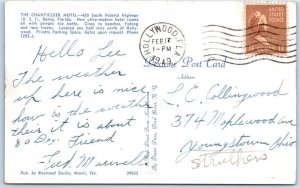 THE CHANTICLEER MOTEL—430 South Federal Highway
(U. S. 1), Dania, Florida. New ultra-modern hotel rooms
all with private tile baths. Close to beaches, fishing
and race tracks. Located one half mile north of Hollywood.
Private Parking Space. Rates upon request. Phone
1205-J.
Hello Lee
The weather
up here is nice
how is the weather
their it is about
80 Dear Friend
Fred
Pub. by Raymond Studio, Miami, Fla.
39803
HOLLYWOOD, FLA.
FEB 17
1-PM
1949
Post Card
L. C. Collingwood
374 Maplewood Ave
Youngstown Ohio
Struthers